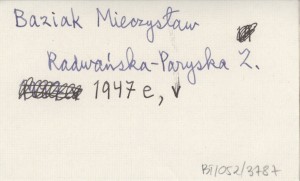 Baziak Mieczysław
Radwańska-Paryska Z.
1947 e, ↓
BT/052/3787